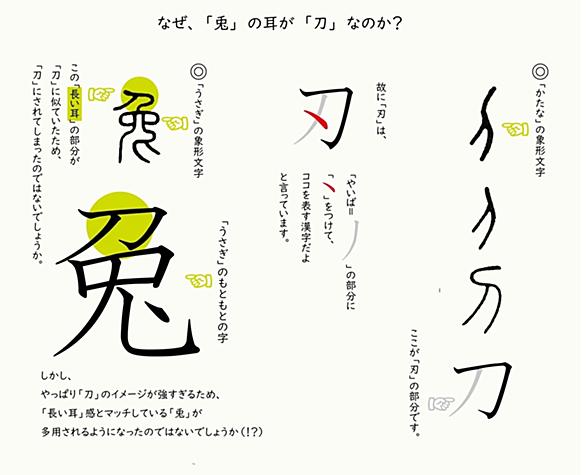 なぜ、「兎」の耳が「刀」なのか?
◎「かたな」の象形文字
刀
ここが「刃」の部分です。
故に「刃」は、
刃
「やいば=ノ」の部分に
「丶」をつけて、
ココを表す漢字だよ
と言っています。
◎「うさぎ」の象形文字
この「長い耳」の部分が
「刀」に似ていたため、
「刀」にされてしまったのではないでしょうか。
「うさぎ」のもともとの字
しかし、
やっぱり「刀」のイメージが強すぎるため、
「長い耳」感とマッチしている「兎」が
多用されるようになったのではないでしょうか(!?)